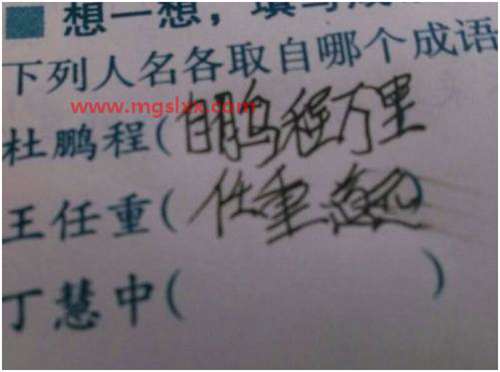 想一想，填写成
下列人名各取自哪个成语
www.mgslyx.com
杜鹏程(鹏程万里
王任重(任重道远)
丁慧中( )